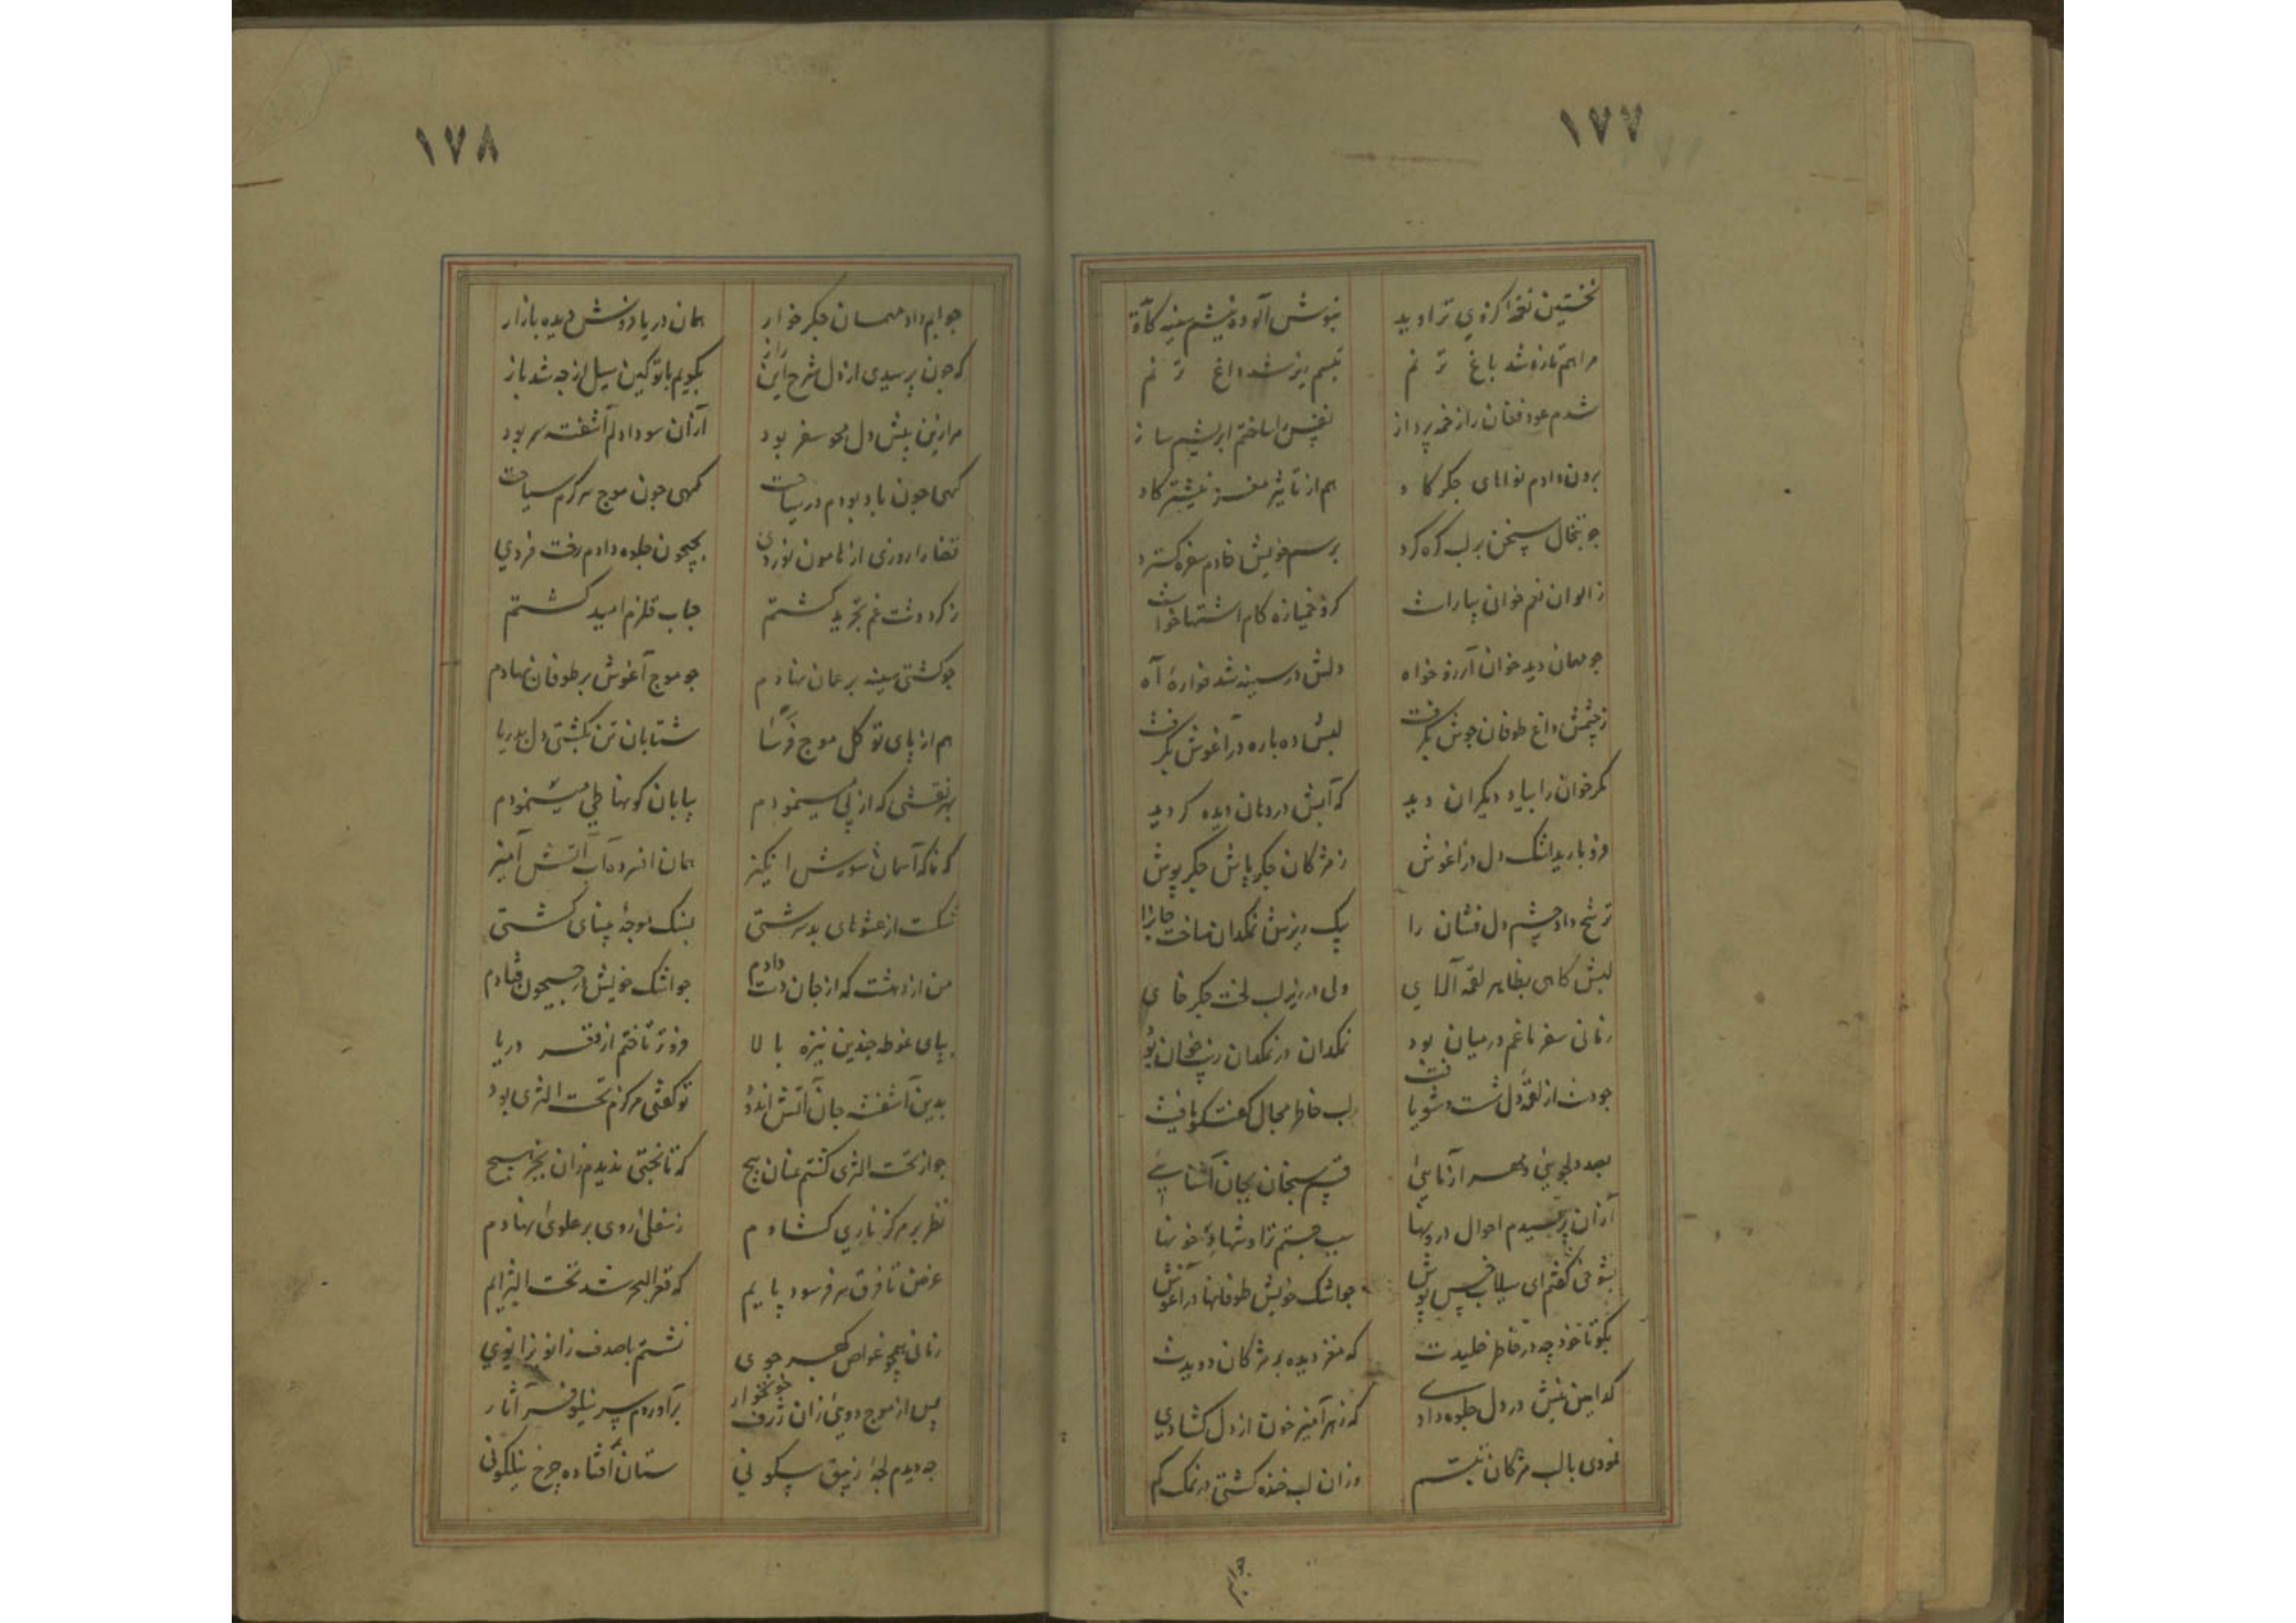 ١٧٧
نخستین نغمه کزوی تراوید بنوش آلوده نیشم سینه کاوید
مرا هم تازه شد باغ ترنم تبسم ریز شد داغ ترنم
شدم عود فغان را زخمه پرداز نفس را ساختم ابریشم ساز
برون دادم نواهای جگر کاو هم از تأثیر مغز نیشتر کاو
چو تبخال سخن بر لب گره کرد برسم خویش خادم سفره گسترد
ز الوان نعم خوان بیاراست کزو خمیازه کام اشتها خواست
چو مهمان دید خوان آرزو خواه دلش در سینه شد فواره آه
ز چشمش داغ طوفان جوش بگرفت لبش ده باره در آغوش بگرفت
مگر خوان را بیاد دیگران دید که آبش در دهان دیده گردید
فرو بارید اشک دل در آغوش ز مژگان جگر پاش جگر پوش
ترشح داد چشم دل فشان را بیک ریزش نمکدان ساخت خانرا
لبش گاهی بظاهر لقمه آلای ولی در زیر لب لخت جگر خای
زمانی سفر ناغم در میان بود نمکدان در نمکدان
چو دست از لقمه دل شست و شو یافت لب خاطر مجال گفتگو یافت
بصد دلجویی و مهر آزمایی قسم سنجان بجان آشنایی
از آن پرسیدم احوال درونها سبب جستم تراوشهای خونها
بشوخی گفتم ای سیلاب خس پوش چو اشک خویش طوفانها در آغوش
بگو تا خود چه در خاطر خلیدت که مغز دیده بر مژگان دویدت
کدامین نیش در دل جلوه دادی که زهر آمیز خون از دل گشادی
نمودی با لب مژگان تبسم وزان لب خنده گشتی در نمک گم
جوابم
١٧٨
جوابم داد مهمان جگر خوار همان دریا فروش دیده بازار
که چون پرسیدی از دل شرح این راز بگویم با تو کین سیل از چه شد باز
مرا زین پیش دل محو سفر بود از آن سودا دلم آشفته سر بود
گهی چون باد بودم در سیاحت گهی چون موج سرگرم سیاحت
قضا را روزی از هامون نوردی بجیحون جلوه دادم رخت فردی
ز گرد دشت غم تجرید گشتم حباب قلزم امید گشتم
چو کشتی سینه بر عمان نهادم چو موج آغوش بر طوفان نهادم
هم از پای توکل موج فرسا شتابان تن بکشتی دل بدریا
بهر نقشی که از پی می نمودم بیابان کوبها طی می نمودم
که ناگه آسمان شورش انگیز همان افسرده آب آتش آمیز
شکست از عشوهای بد سرشتی بسنگ موجه مینای کشتی
من از دهشت که از جان دست دادم چو اشک خویش در جیحون فتادم
بپای غوطه چندین نیزه بالا فروتر تاختم از قعر دریا
بدین آشفته جان آتش اندود تو گفتی مرکزم تحت الثری بود
چو از تحت الثری گشتم عنان پیچ که تا تختی ندیدم زان بجز هیچ
نظر بر مرکز ناری گشادم ز سفلی روی بر علوی نهادم
غرض تا فرق سر فرسود پایم که قعر البحر شد تحت الثرایم
زمانی همچو غواص گهر جوی نشستم با صدف زانو بزانوی
پس از موج دویی زان ژرف خونخوار برآوردم سر نیلوفر آثار
چه دیدم لجه زیبق سکونی ستان افتاده چرخ نیلگونی